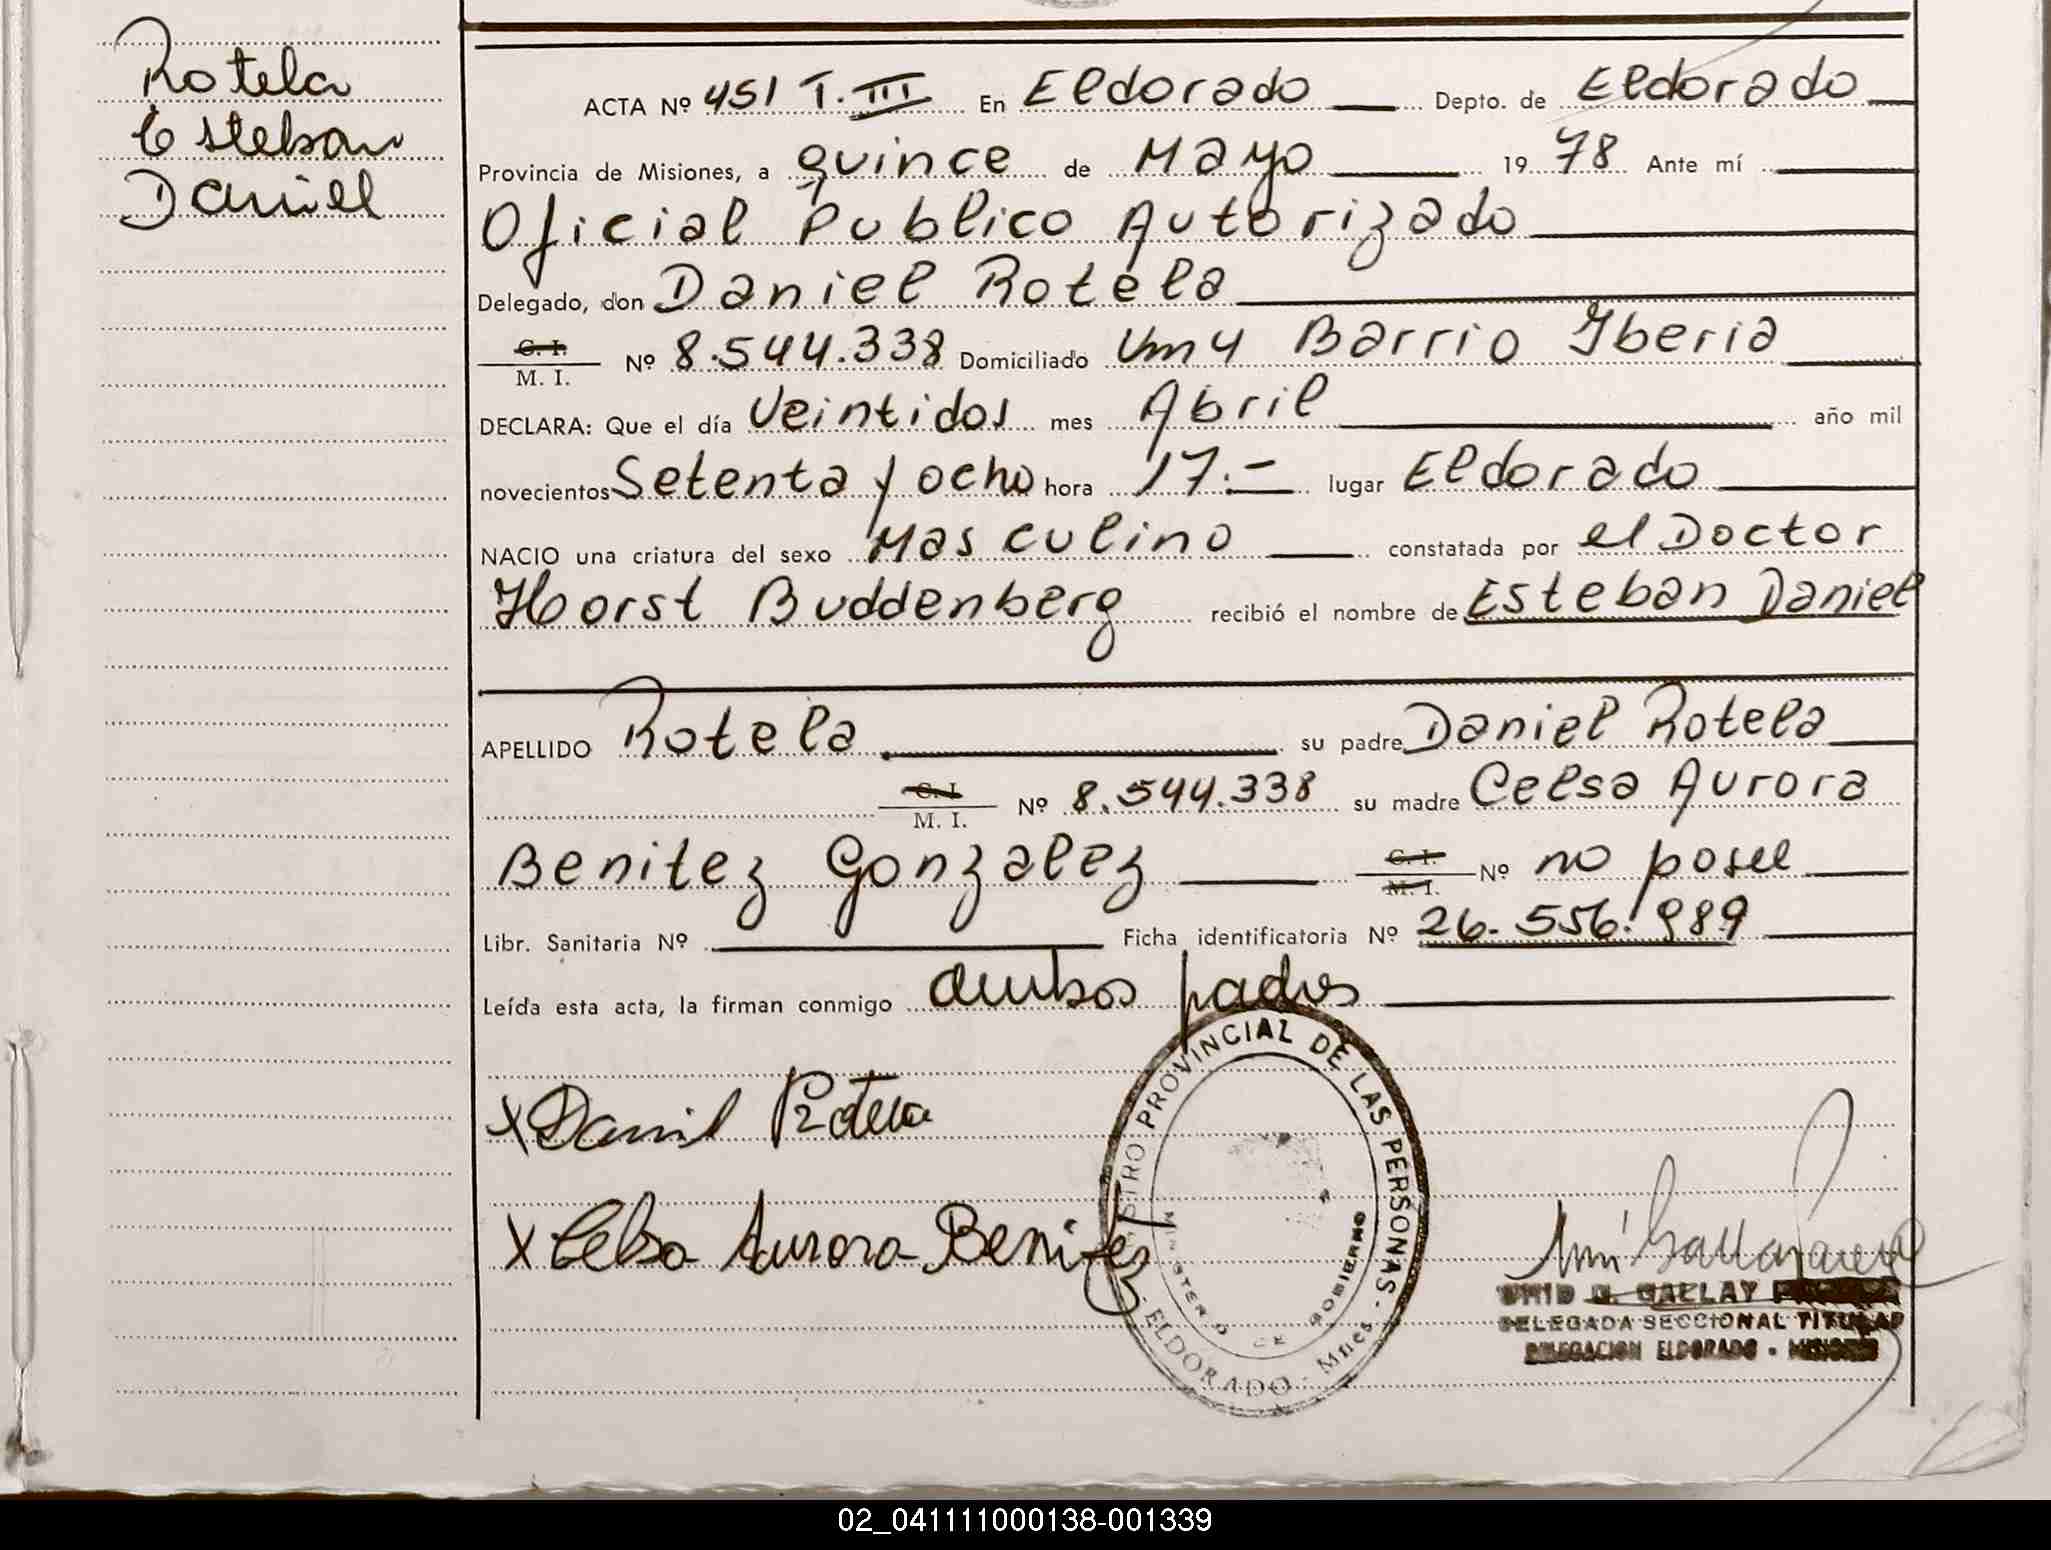 Rotela
Esteban
Daniel
ACTA Nº 451 T. III En Eldorado Depto. de Eldorado
Provincia de Misiones, a quince de Mayo 19 78 Ante mí
Oficial Publico Autorizado
Delegado, don Daniel Rotela
C. I.
M. I. Nº 8.544.338 Domiciliado Km 4 Barrio Iberia
DECLARA: Que el día Veintidos mes Abril año mil
novecientos Setenta y ocho hora 17.- lugar Eldorado
NACIO una criatura del sexo Masculino constatada por el Doctor
Horst Buddenberg recibió el nombre de Esteban Daniel
APELLIDO Rotela su padre Daniel Rotela
C. I.
M. I. Nº 8.544.338 su madre Celsa Aurora
Benitez Gonzalez C. I.
M. I. Nº no posee
Libr. Sanitaria Nº Ficha identificatoria Nº 26.556.989
Leída esta acta, la firman conmigo ambos padres
X Daniel Rotela
X Celsa Aurora Benitez
REGISTRO PROVINCIAL DE LAS PERSONAS - Mnes - ELDORADO -
MINISTERIO DE GOBIERNO
GALLAY
DELEGADA SECCIONAL TITULAR
DELEGACION ELDORADO - MISIONES
02_041111000138-001339